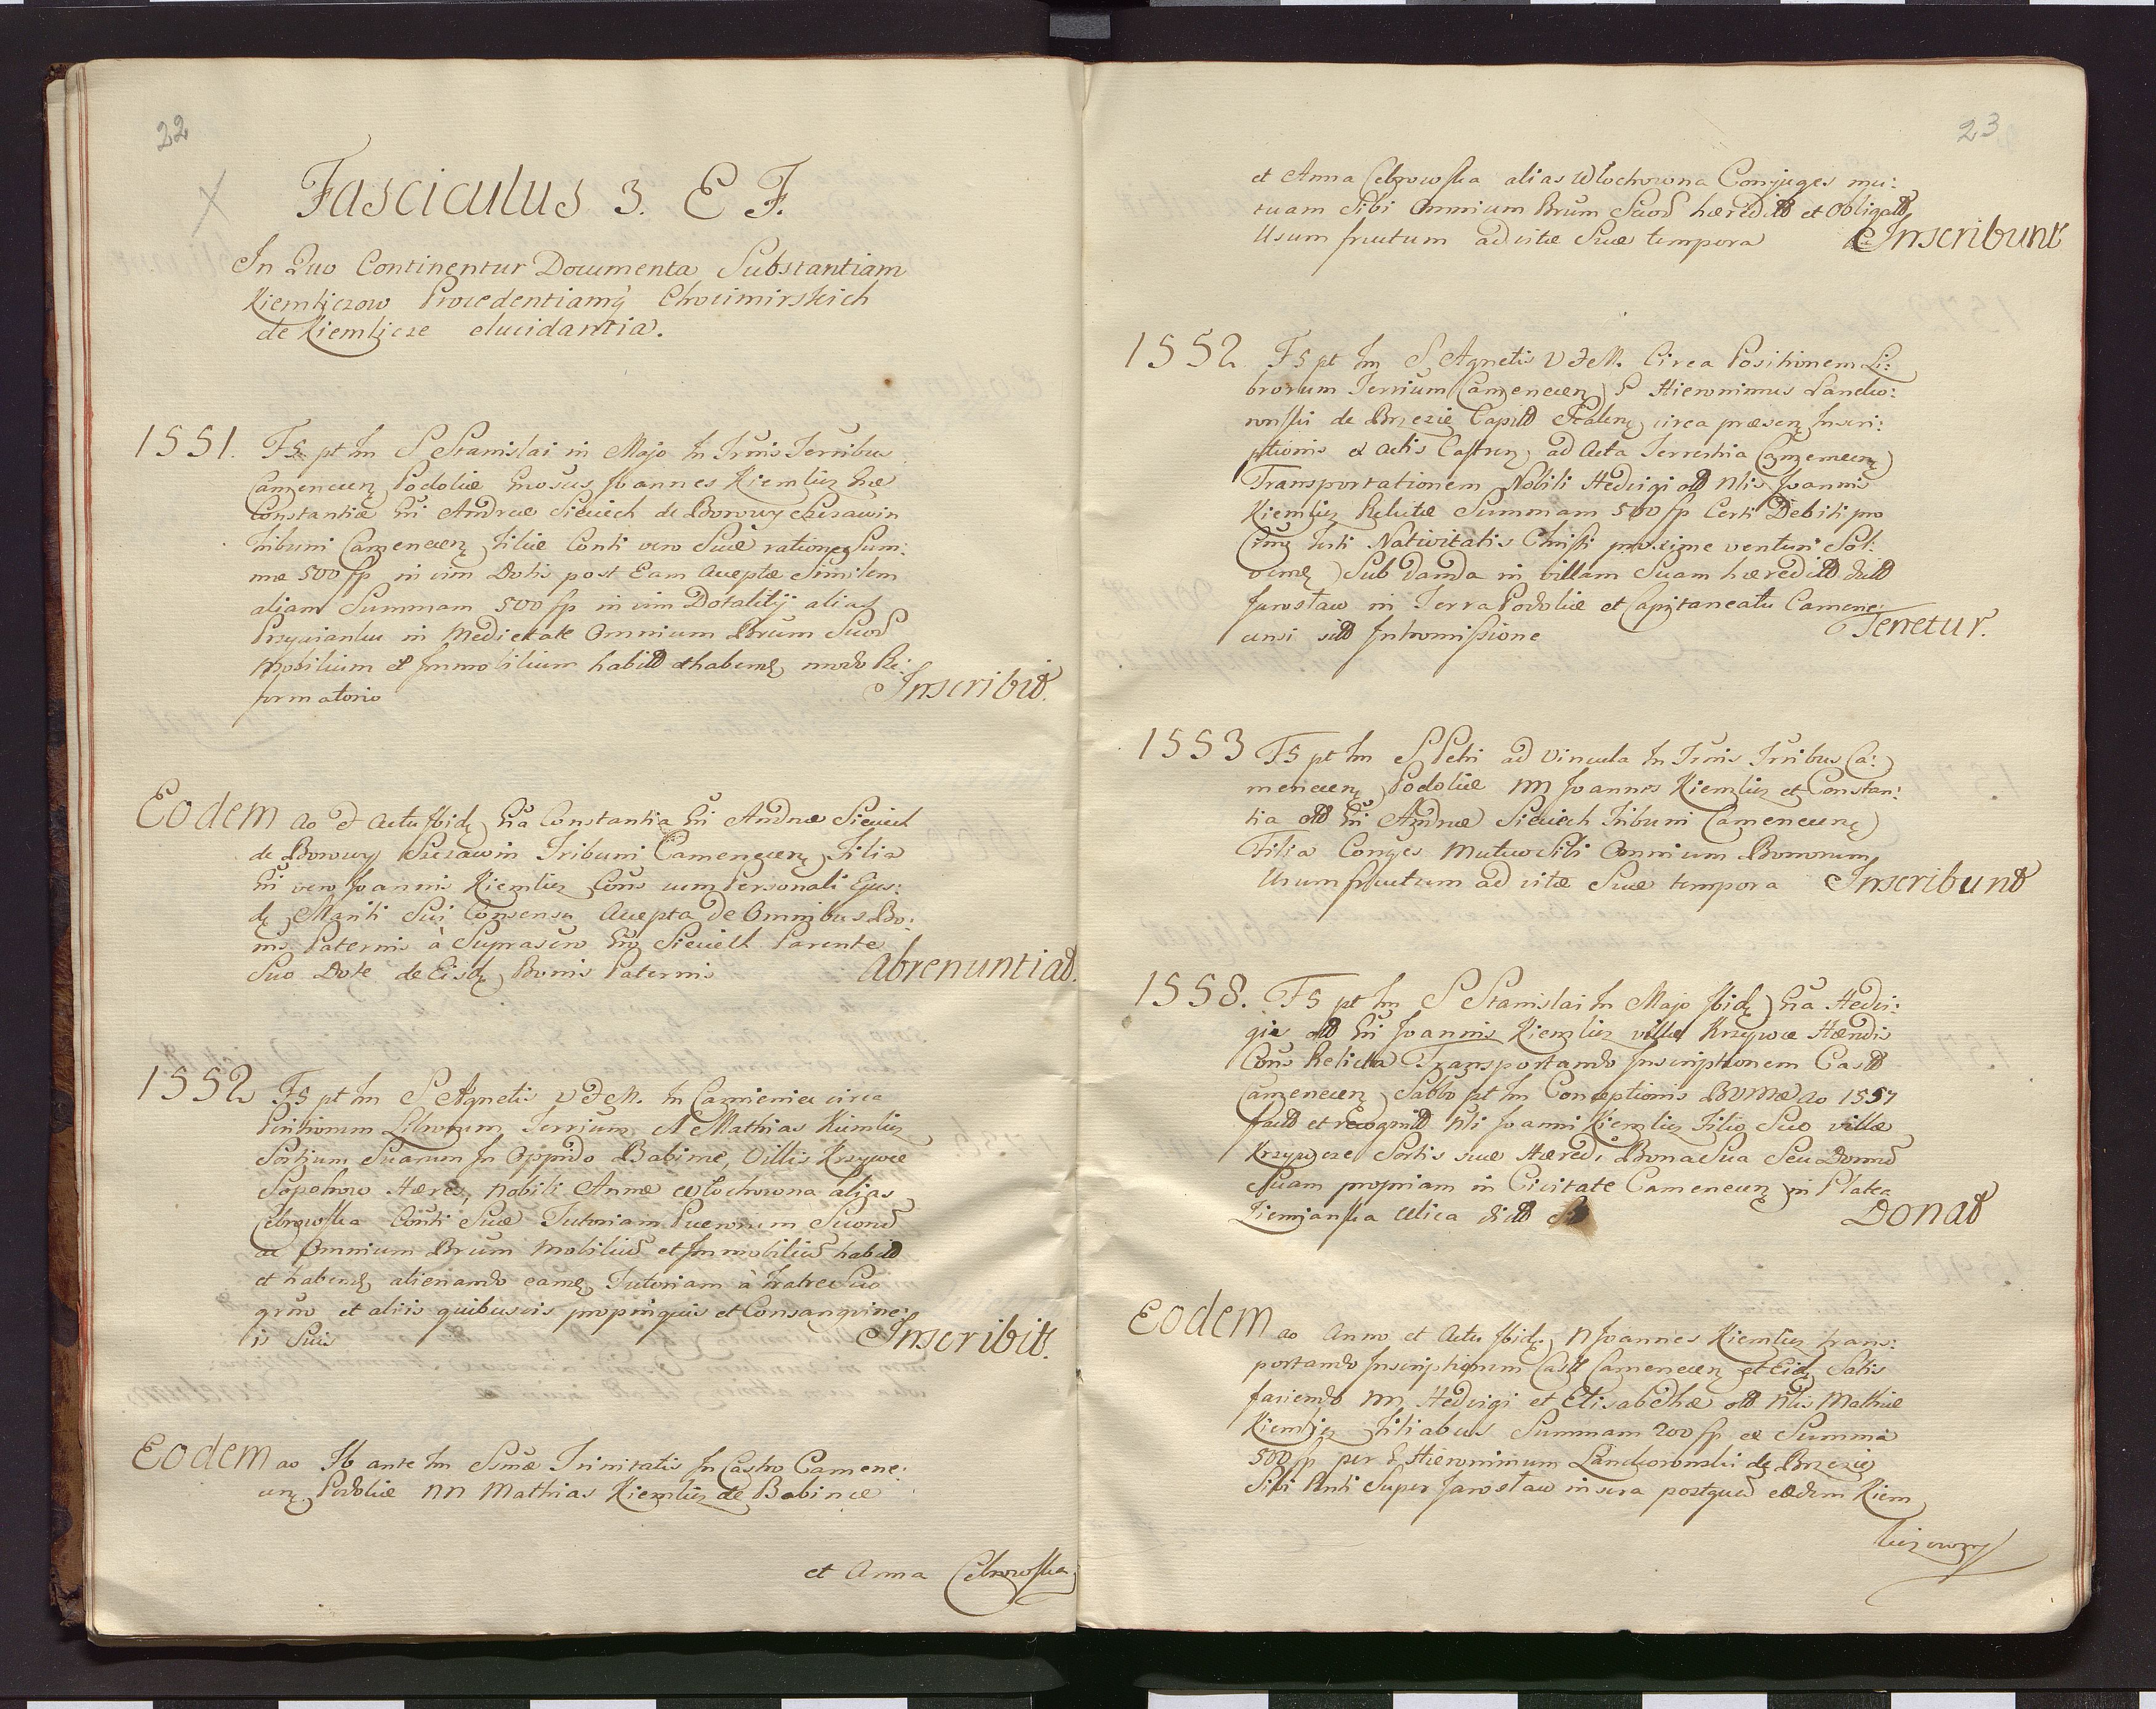 22
Fasciculus 3. E F.
In Quo Continentur Documenta Substantiam
Kiemliczow Procedentiamq Chocimirskich
de Kiemlicze elucidantia.
1551. F5 pt fm S Stanislai in Majo In Trmis Terribus
Camenecen Podoliæ Gnosus Joannes Kiemlicz Gnæ
Constantiæ Gni Andreæ Sieciech de Borowy Szczawin
Tribuni Camenecen Filiæ Conti vero Suæ ratione Sum:
mæ 500 fp in vim Dotis post Eam Acceptæ Similem
aliam Summam 500 fp in vim Dotalitij alias
Przywianku in Medietate Omnium Brum Suor
Mobilium et Immobilium habitt et haben modo Re:
formatorio Inscribit.
Eodem ao et Actu Ibid Gna Constantia Gni Andreæ Sieciech
de Borowy Szczawin Tribuni Camenecen Filia
Gni vero Joannis Kiemlicz Cons cum Personali Ejus:
d Mariti Sui Consensu Accepta de Omnibus Bo:
nis Paternis à Suprascro Gno Siecieth Parente
Suo Dote de Eisd Bonis Paternis Abrenuntiat.
1552 F5 pt fm S Agnetis V et M. In Camieniec circa
Positionem Librorum Terrium N Mathias Kiemlicz
Sortium Suarum In Oppido Babince, Villis Krzywcze
Sapohow Hæres, Nobili Annæ Wlochowna alias
Cebrowska Conti Suæ Tutoriam Puerorum Suorum
ac Omnium Brum Mobilium et Immobilium habitt
et haben alienando eam Tutoriam à Fratre Suo
grno et aliis quibusvis propinquis et Consangvine:
is Suis Inscribit.
Eodem ao Fb ante fm Ssmæ Trinitatis In Castro Camene:
cen. Podoliæ NN Mathias Kiemlicz de Babince
et Anna Cebrowska
23
et Anna Cebrowska alias Wlochowna Conjuges mu:
tuam Sibi Omnium Brum Suor hæreditt et Obligatt
Usum fructum ad vitæ Suæ tempora Inscribunt
1552 F5 pt fm S Agnetis V et M. Circa Positionem Li:
brorum Terrium Camenecen S Hieronimus Lancko:
ronski de Brzezie Capitt Scalen circa præsen Inscri:
ptionis ex actis Castren ad Acta Terrestria Camenecen
Transportationem Nobili Hedvigi ott Nlis Joannis
Kiemlicz Relictæ Summam 500 fp Certi Debiti pro
Crast festi Nativitatis Christi proxime venturi Sol:
ven Sub danda in villam Suam hæreditt dictt
Jarosław in Terra Podoliæ et Capitaneatu Camene:
censi sitt Intromissione Tenetur.
1553 F5 pt fm S Petri ad Vincula In Trmis Tribus Ca:
menecen Podoliæ NN Joannes Kiemlicz et Constan:
tia ott Gni Andreæ Sieciech Tribuni Camenecen
Filia Conges Mutuo Sibi Omnium Bonorum
Usum fructum ad vitæ Suæ tempora Inscribunt
1558. F5 pt fm S Stanislai In Majo Ibid Gna Hedvi:
gis ott Gni Joannis Kiemlicz villæ Krzywcze Hæredis
Cons Relicta Transportando Inscriptionem Castt
Camenecen Sabbo pt fm Conceptionis BVMæ ao 1557
factt et recognitt Nli Joanni Kiemlicz Filio Suo villæ
Krzywcze Sortis suæ Hæredi Bona Sua Seu Domum
Suam propriam in Civitate Camenecen in Platea
Ziemianska Ulica dictt Donat
Eodem ao Anno et Actu Ibid. N Joannes Kiemlicz trans:
portando Inscriptionem Castt Camenecen et Eid Satis
faciendo NN Hedvigi et Elisabethæ ott Nlis Mathiæ
Kiemlicz Filiabus Summam 200 fp ex Summa
500 fp per S Hieronimum Lanckoronski de Brzezie
Sibi Anti Super Jarosław inscra postquam eædem Kiem
liczowny